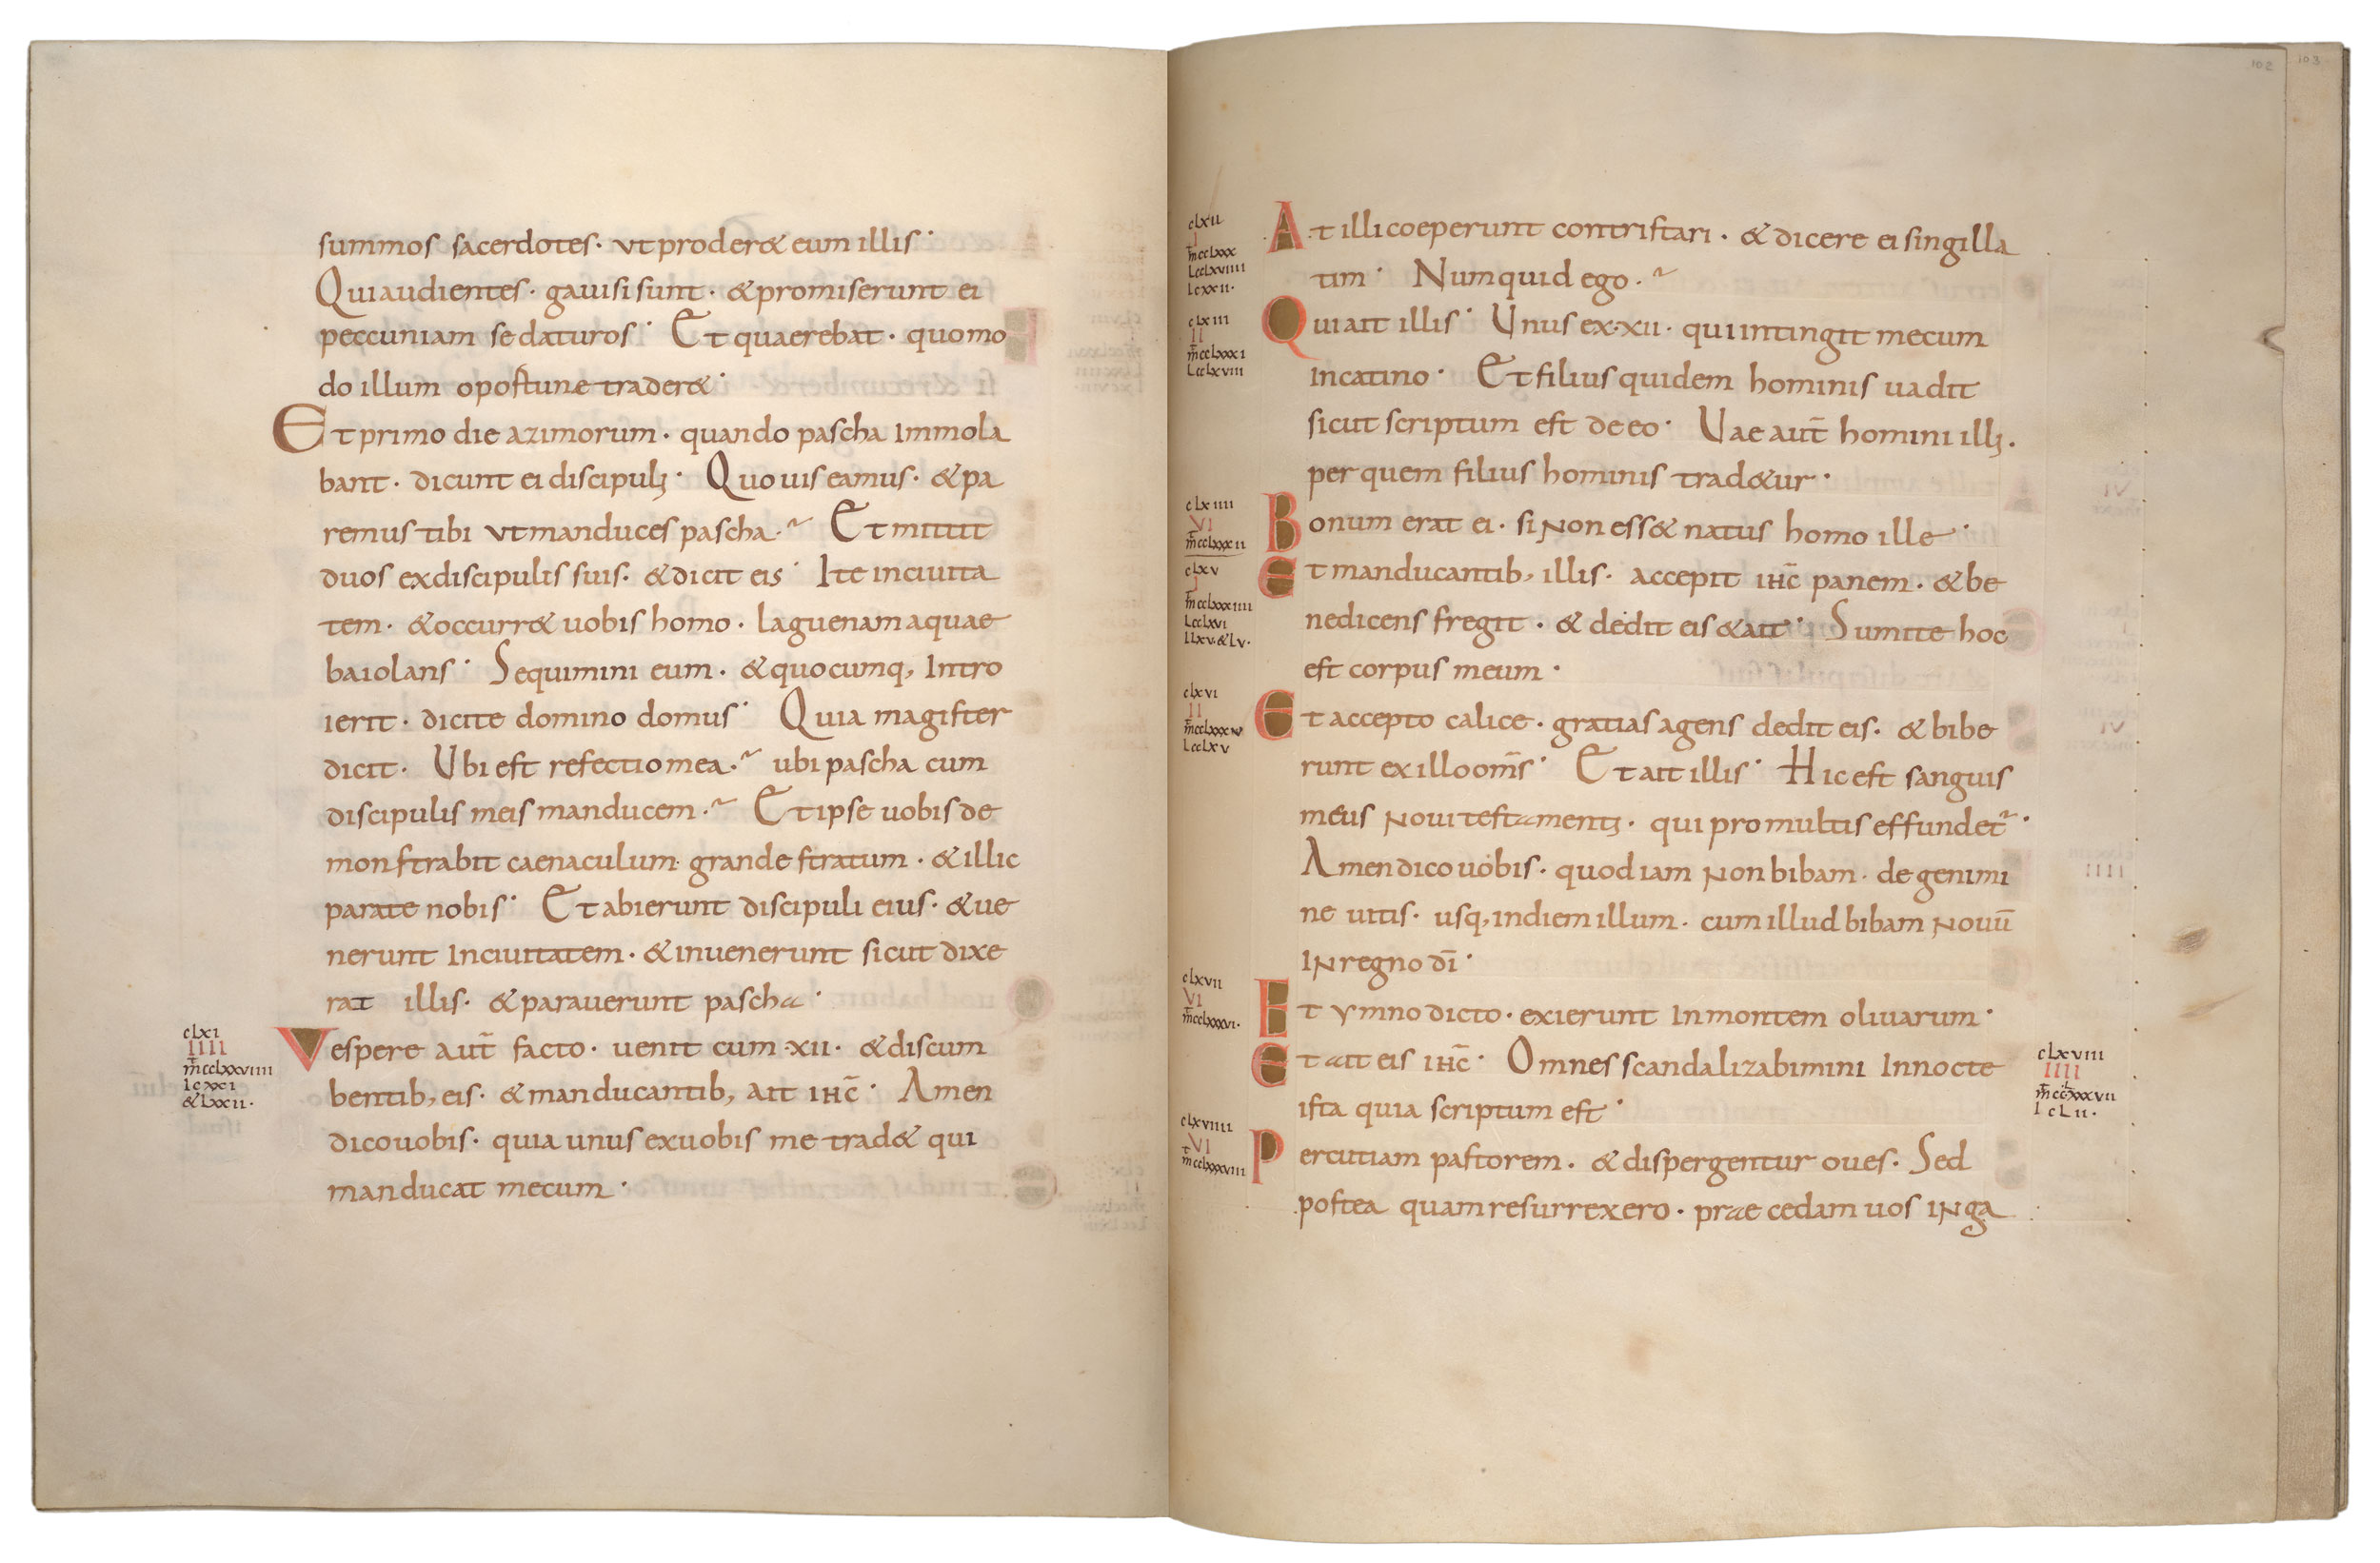 summos sacerdotes· ut proder& eum illis·
Qui audientes· gauisi sunt· & promiserunt ei
peccuniam se daturos· Et quaerebat· quomo
do illum oportune trader&·
Et primo die azimorum· quando pascha immola
bant· dicunt ei discipuli· Quo uis eamus· & pa
remus tibi ut manduces pascha·~ Et mittit
duos ex discipulis suis· & dicit eis· Ite in ciuita
tem· & occurr& uobis homo· laguenam aquae
baiolans· Sequimini eum· & quocumq; intro
ierit· dicite domino domus· Quia magister
dicit· Ubi est refectio mea·~ ubi pascha cum
discipulis meis manducem·~ Et ipse uobis de
monstrabit caenaculum grande stratum· & illic
parate nobis· Et abierunt discipuli eius· & ue
nerunt in ciuitatem· & inuenerunt sicut dixe
rat illis· & parauerunt pascha·
clxi
IIII
mt cclxxviiii
lc xxi
& lxxii·
Vespere aut̄ facto· uenit cum ·xii· & discum
bentib; eis· & manducantib; ait ihc̄· Amen
dico uobis· quia unus ex uobis me trad& qui
manducat mecum·
102
103
clxii
I
mt cclxxx
lc clxviiii
lc xxii·
At illi coeperunt contristari· & dicere ei singilla
tim· Numquid ego·~
clxiii
II
mt cclxxxi
lc clxviii
Qui ait illis· Unus ex ·xii· qui intingit mecum
in catino· Et filius quidem hominis uadit
sicut scriptum est de eo· Uae aut̄ homini illi·
per quem filius hominis trad&ur·
clxiiii
VI
mt cclxxxii
Bonum erat ei· si non ess& natus homo ille·
clxv
I
mt cclxxxiiii
lc clxvi
Et manducantib; illis· accepit ihc̄ panem· & be
nedicens fregit· & dedit eis & ait· Sumite hoc
est corpus meum·
clxvi
II
mt cclxxxv
lc clxv
Et accepto calice· gratias agens dedit eis· & bibe
runt ex illo om̄s· Et ait illis· Hic est sanguis
meus noui testamenti· qui pro multis effundet~·
Amen dico uobis· quod iam non bibam· de genimi
ne uitis· usq; in diem illum· cum illud bibam nouū
in regno dī·
clxvii
VI
mt cclxxxvi·
Et ymno dicto· exierunt in montem oliuarum·
Et ait eis ihc̄· Omnes scandalizabimini in nocte
ista quia scriptum est·
clxviii
IIII
mt cclxxxvii
clxviiii
VI
mt cclxxxviii
Percutiam pastorem· & dispergentur oues· Sed
postea quam resurrexero· praecedam uos in ga